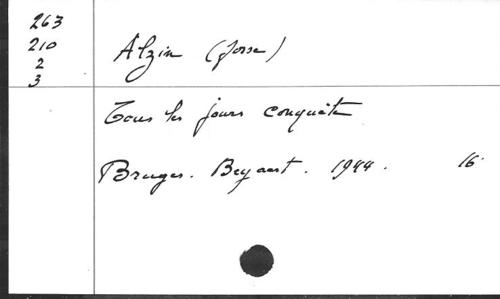 263
210
2
3
Alzin (Josse)
Tous les jours conquête
Bruges. Beyaert. 1944. 16